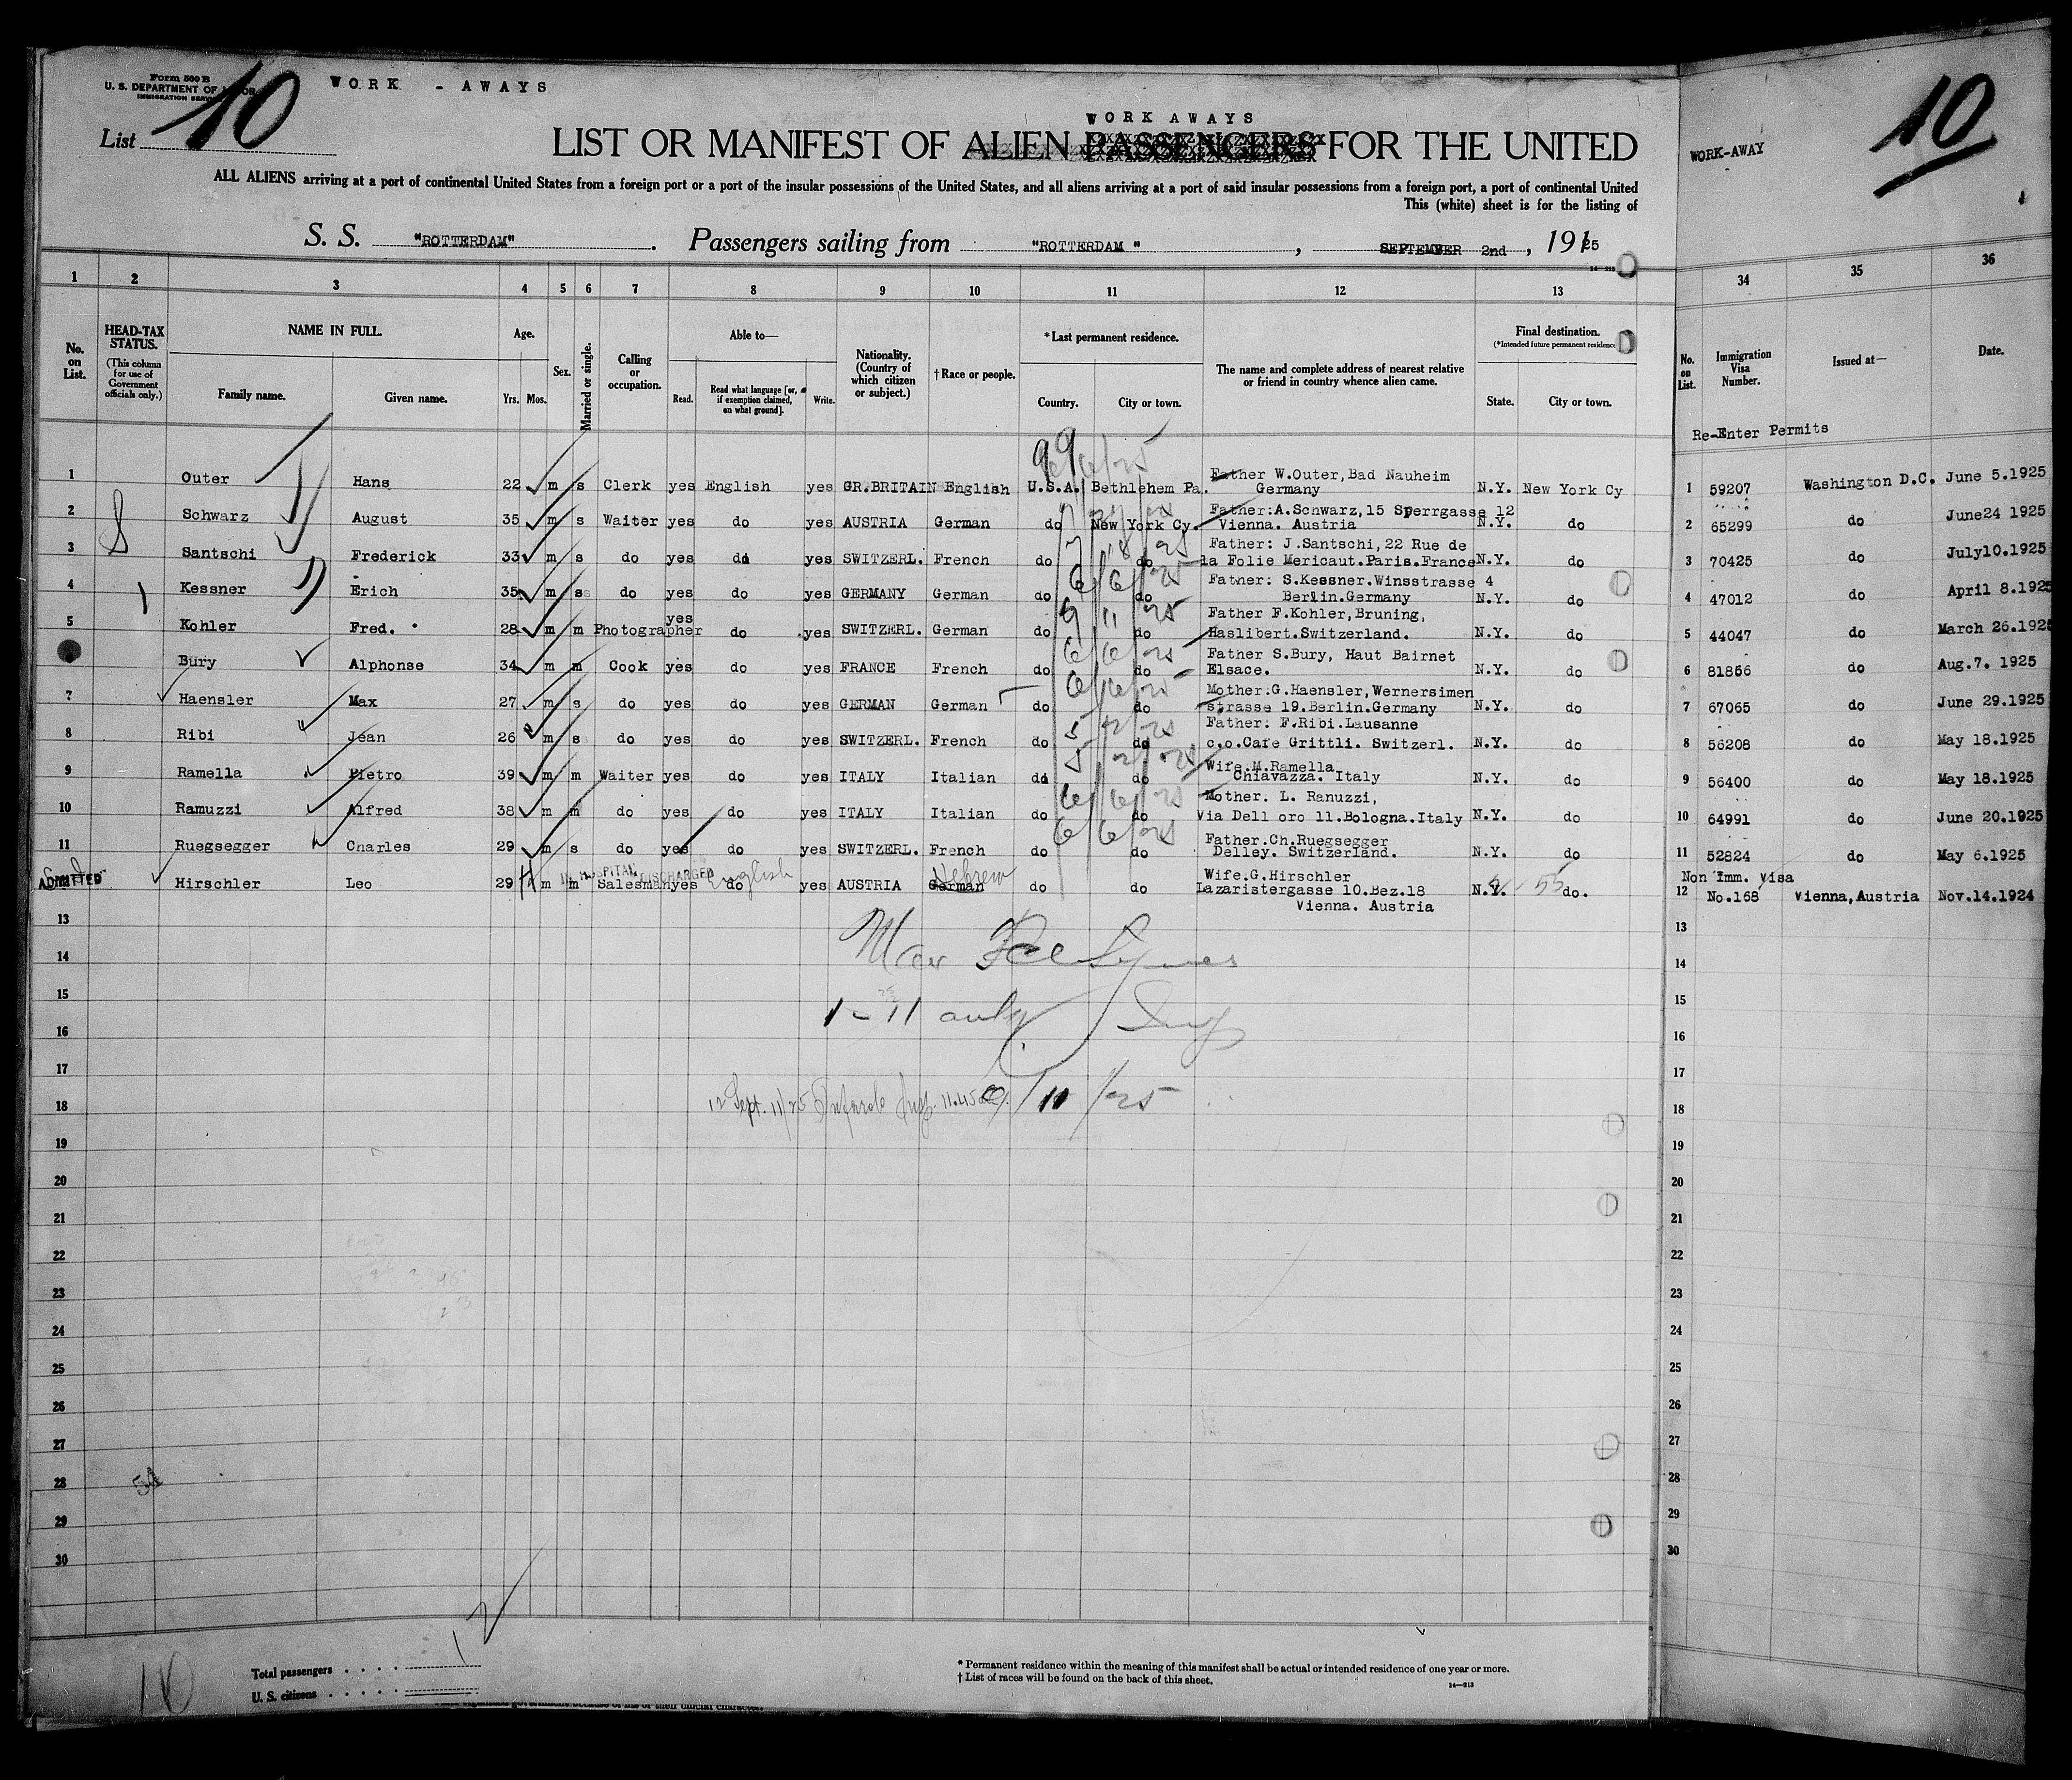 Form 500 B
U. S. DEPARTMENT OF LABOR
IMMIGRATION SERVICE
WORK - AWAYS
List 10
WORK AWAYS
LIST OR MANIFEST OF ALIEN PASSENGERS FOR THE UNITED
ALL ALIENS arriving at a port of continental United States from a foreign port or a port of the insular possessions of the United States, and all aliens arriving at a port of said insular possessions from a foreign port, a port of continental United
This (white) sheet is for the listing of
S. S. "ROTTERDAM". Passengers sailing from "ROTTERDAM ", SEPTEMBER 2nd, 1925
14—213
WORK-AWAY
10
1 2 3 4 5 6 7 8 9 10 11 12 13
34 35 36
No. on List.
HEAD-TAX STATUS.
(This column for use of Government officials only.)
NAME IN FULL.
Family name. Given name.
Age.
Yrs. Mos.
Sex.
Married or single.
Calling or occupation.
Able to—
Read. Read what language [or, if exemption claimed, on what ground]. Write.
Nationality. (Country of which citizen or subject.)
†Race or people.
*Last permanent residence.
Country. City or town.
The name and complete address of nearest relative or friend in country whence alien came.
Final destination.
(*Intended future permanent residence
State. City or town.
No. on List.
Immigration Visa Number.
Issued at—
Date.
Re-Enter Permits
1 Outer Hans 22 m s Clerk yes English yes GR.BRITAIN English U.S.A. Bethlehem Pa. Father W.Outer,Bad Nauheim Germany N.Y. New York Cy 1 59207 Washington D.C. June 5.1925
2 Schwarz August 35 m s Waiter yes do yes AUSTRIA German do New York Cy. Father:A.Schwarz,15 Sperrgasse 12 Vienna. Austria N.Y. do 2 65299 do June24 1925
3 Santschi Frederick 33 m s do yes do yes SWITZERL. French do do Father: J.Santschi,22 Rue de la Folie Mericaut.Paris.France N.Y. do 3 70425 do July10.1925
4 Kessner Erich 35 m s do yes do yes GERMANY German do do Father: S.Kessner.Winsstrasse 4 Berlin.Germany N.Y. do 4 47012 do April 8.1925
5 Kohler Fred. 28 m m Photographer yes do yes SWITZERL. German do do Father F.Kohler,Bruning, Haslibert.Switzerland. N.Y. do 5 44047 do March 26.1925
Bury Alphonse 34 m m Cook yes do yes FRANCE French do do Father S.Bury, Haut Bairnet Elsace. N.Y. do 6 81856 do Aug.7. 1925
7 Haensler Max 27 m s do yes do yes GERMAN German do do Mother:G.Haensler,Wernersimen strasse 19.Berlin.Germany N.Y. do 7 67065 do June 29.1925
8 Ribi Jean 26 m s do yes do yes SWITZERL. French do do Father: F.Ribi.Lausanne c.o.Cafe Grittli. Switzerl. N.Y. do 8 56208 do May 18.1925
9 Ramella Pietro 39 m m Waiter yes do yes ITALY Italian do do Wife.M.Ramella Chiavazza. Italy N.Y. do 9 56400 do May 18.1925
10 Ramuzzi Alfred 38 m m do yes do yes ITALY Italian do do Mother. L. Ranuzzi, Via Dell oro 11.Bologna.Italy N.Y. do 10 64991 do June 20.1925
11 Ruegsegger Charles 29 m s do yes do yes SWITZERL. French do do Father.Ch.Ruegsegger Delley. Switzerland. N.Y. do 11 52824 do May 6.1925
ADMITTED Hirschler Leo 29 m m Salesman yes do English yes AUSTRIA German Hebrew do do Wife.G.Hirschler Lazaristergasse 10.Bez.18 Vienna. Austria N.Y. do. 12 Non Imm. visa No.168 Vienna,Austria Nov.14.1924
IN HOSPITAL DISCHARGED
13 13
14 14
15 15
1 - 11 only
16 16
17 17
9/11/25
18 18
19 19
20 20
21 21
22 22
23 23
24 24
25 25
26 26
27 27
28 28
29 29
30 30
12
10
Total passengers
U. S. citizens
* Permanent residence within the meaning of this manifest shall be actual or intended residence of one year or more.
† List of races will be found on the back of this sheet.
14—213